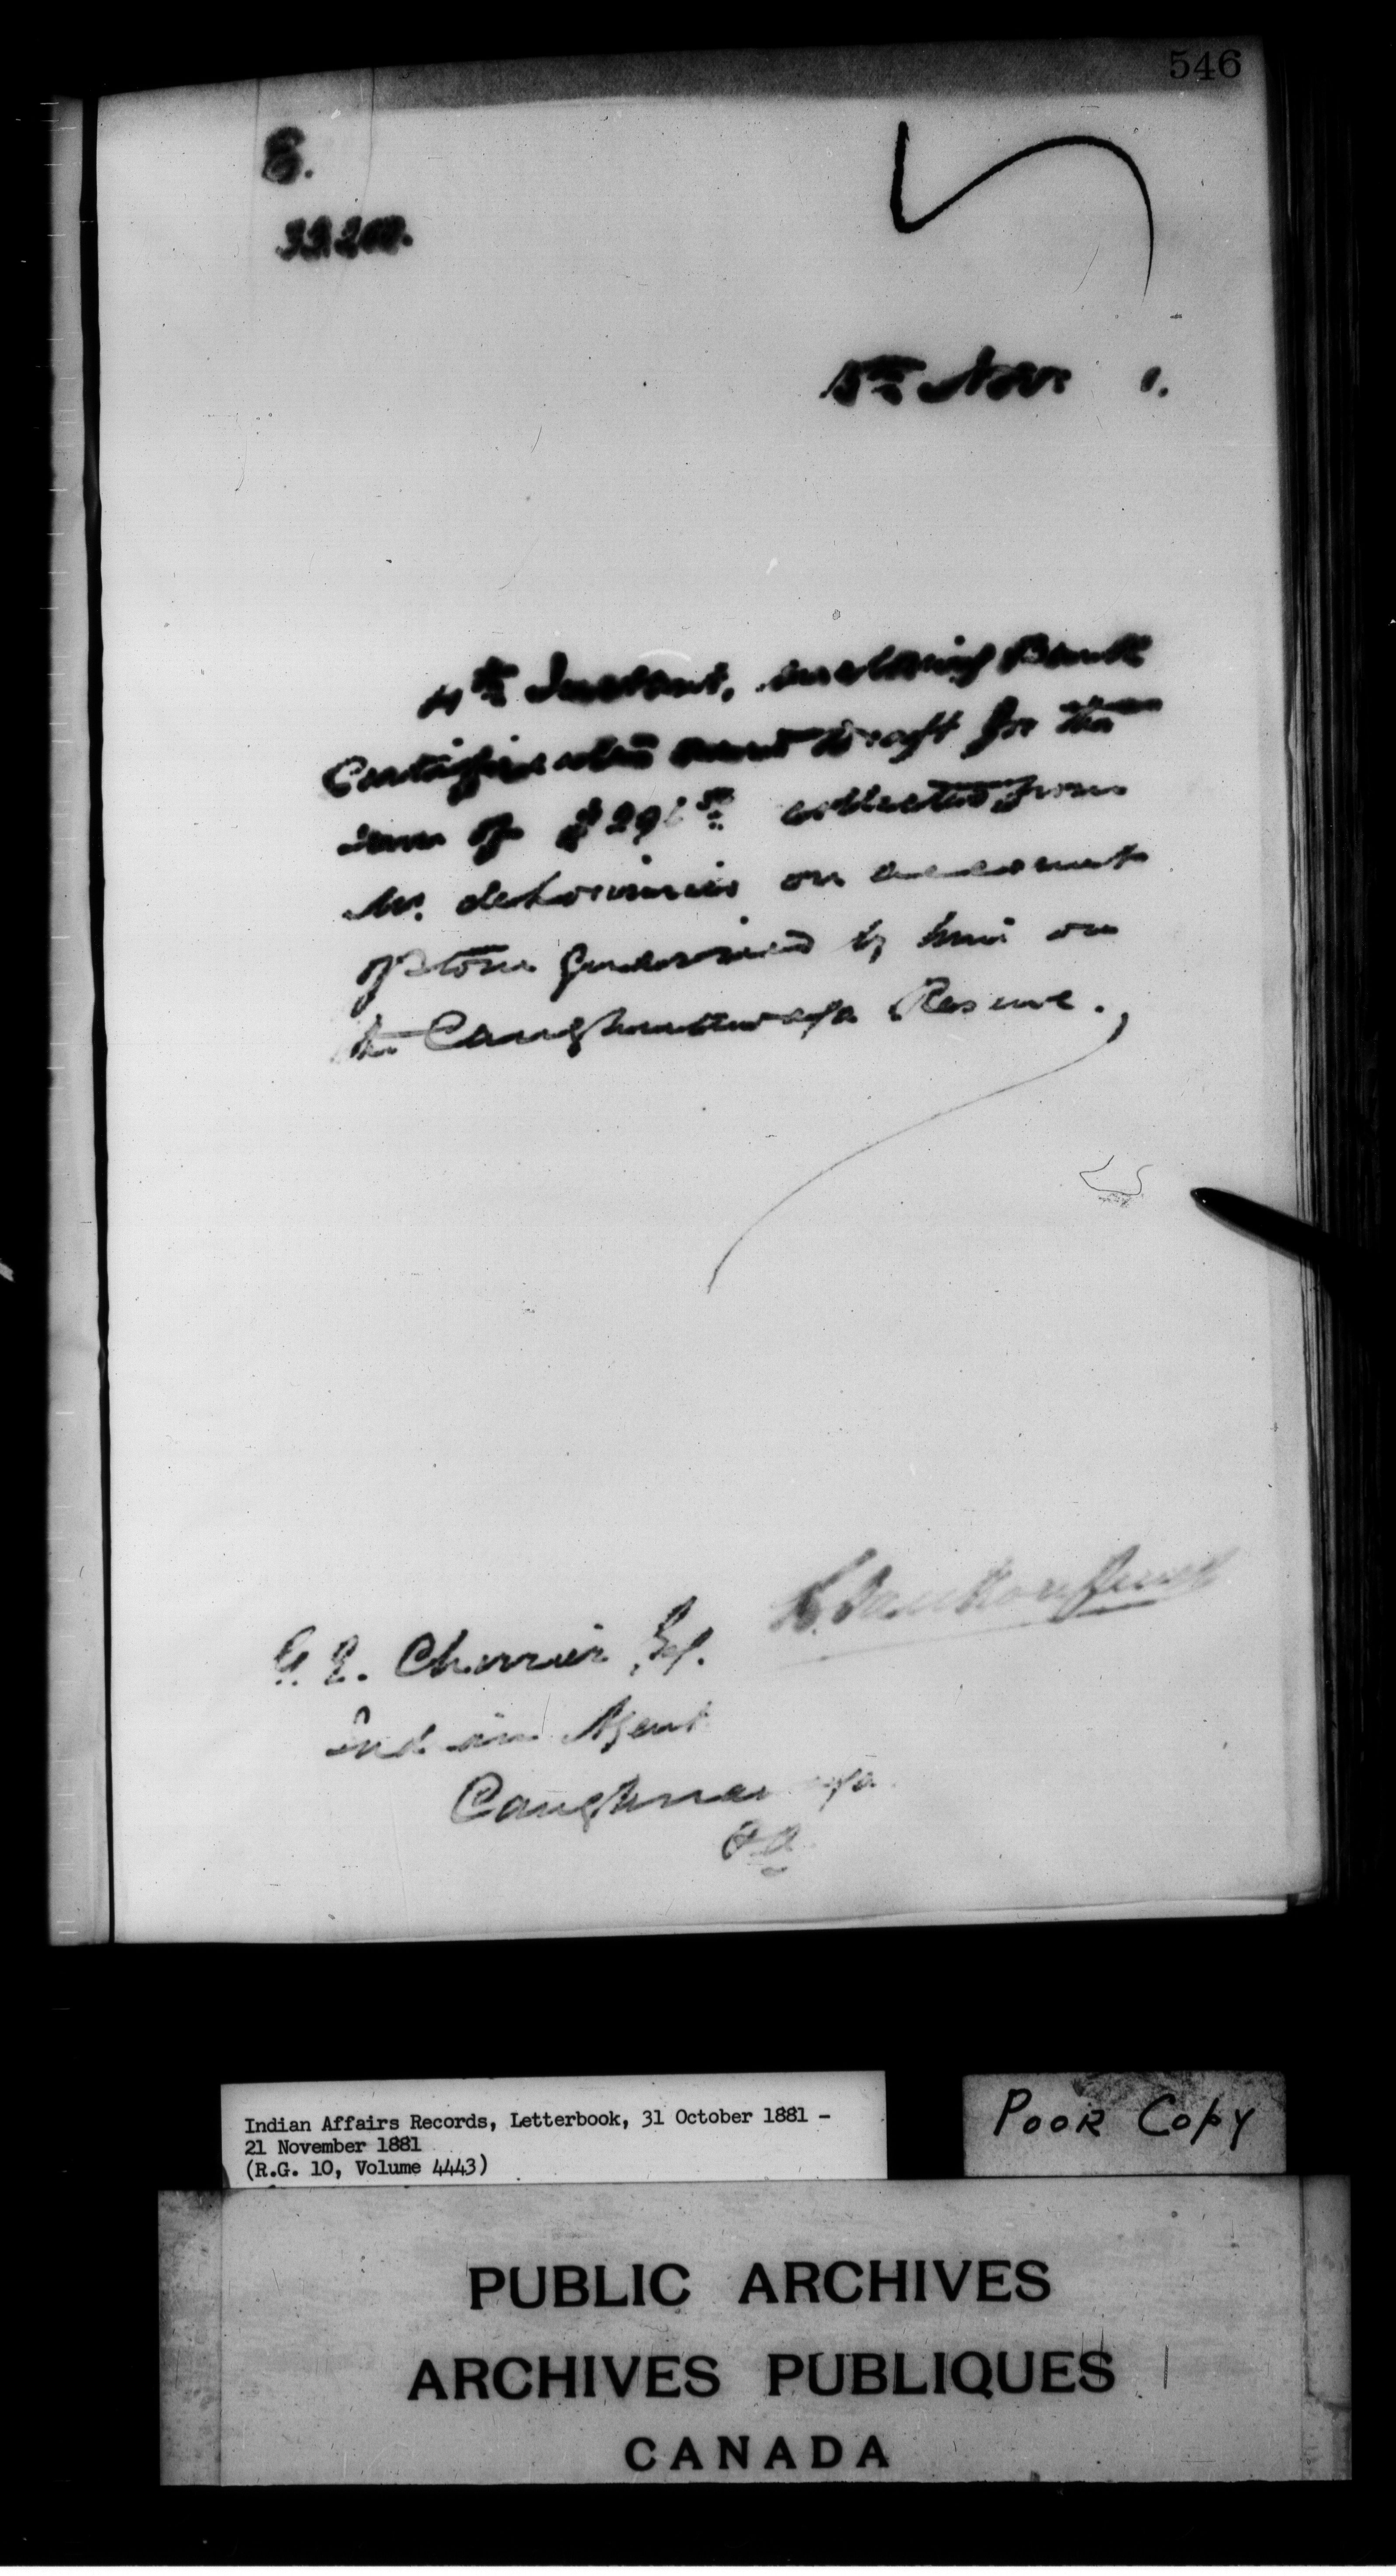 546
15th Nov. 1.
4th Instant, enclosing Bank
Certificate and draft for the
sum of $29 50 collected from
Mr. on account
of stone quarried by him on
the Caughnawaga Reserve.
L. Vankoughnet
G. E. Cherrier, Esq.
Indian Agent
Caughnawaga
P.Q.
Indian Affairs Records, Letterbook, 31 October 1881 -
21 November 1881
(R.G. 10, Volume 4443)
POOR COPY
PUBLIC ARCHIVES
ARCHIVES PUBLIQUES
CANADA